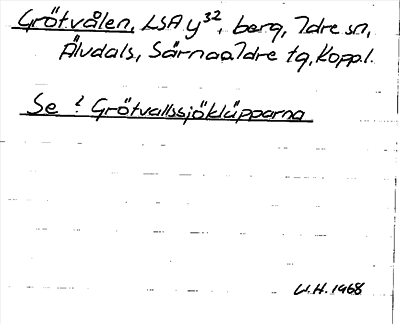 Grötvålen, LSA y³², berg, Idre sn,
Älvdals, Särnaoldre tg, Kopp.l.
Se : Grötvallssjökläpparna
W.H. 1968